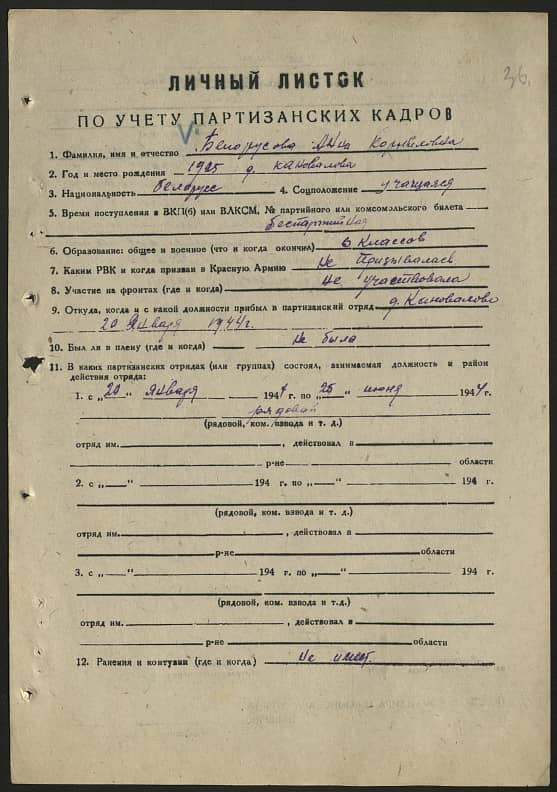 36.
ЛИЧНЫЙ ЛИСТОК
ПО УЧЕТУ ПАРТИЗАНСКИХ КАДРОВ
V
1. Фамилия, имя и отчество Белорусова Анна Корниловна
2. Год и место рождения 1925 д. Кановалова
3. Национальность белорусс 4. Соцположение учащаяся
5. Время поступления в ВКП(б) или ВЛКСМ, № партийного или комсомольского билета
беспартийная
6. Образование: общее и военное (что и когда окончил) 6 классов
7. Каким РВК и когда призван в Красную Армию не призывалась
8. Участие на фронтах (где и когда) не участвовала
9. Откуда, когда и с какой должности прибыл в партизанский отряд д. Кановалово
20 января 1944 г.
10. Был ли в плену (где и когда) не была
11. В каких партизанских отрядах (или группах) состоял, занимаемая должность и район
действия отряда:
1. с „20“ января 1944 г. по „25“ июня 1944 г.
рядовой
(рядовой, ком. взвода и т. д.)
отряд им. , действовал в
р-не области
2. с „ “ 194 г. по „ “ 194 г.
(рядовой, ком. взвода и т. д.)
отряд им. , действовал в
р-не области
3. с „ “ 194 г. по „ “ 194 г.
(рядовой, ком. взвода и т.д.)
отряд им. , действовал в
р-не области
12. Ранения и контузии (где и когда) не имеет.